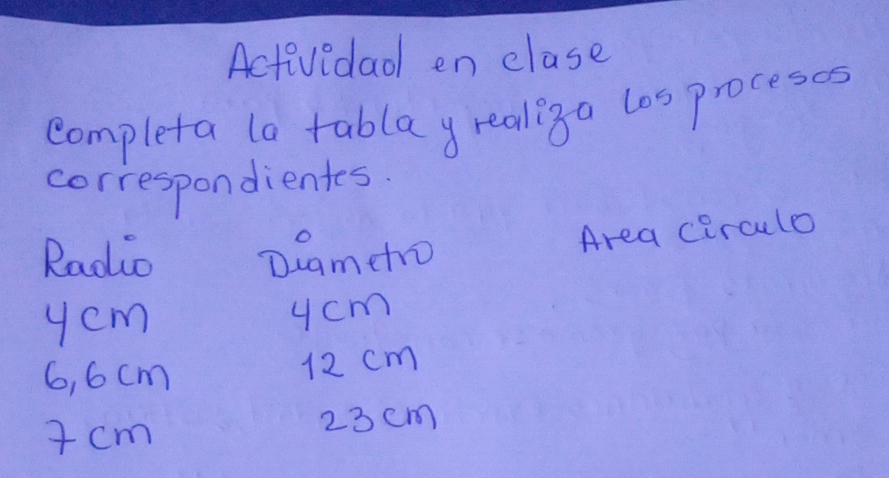 Actividad en clase
Completa la tabla y realiza los procesos
correspondientes.
Radio Diametro Area circulo
4cm 4cm
6,6cm 12 cm
7cm 23cm